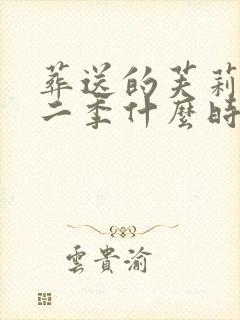 葬送的芙莉
二季什麼時
雲貴渝